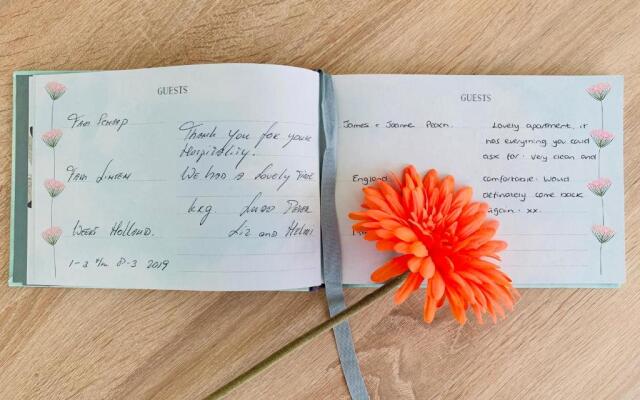 GUESTS
Thank you for your
Hospitality.
We had a Lovely Time
Weert Holland.
Liz and
1-3 t/m 8-3 2019
GUESTS
James + Joanne Peach.
Lovely apartment, it
has everything you could
ask for. very clean and
England
comfortable. Would
definately come back
again. xx.